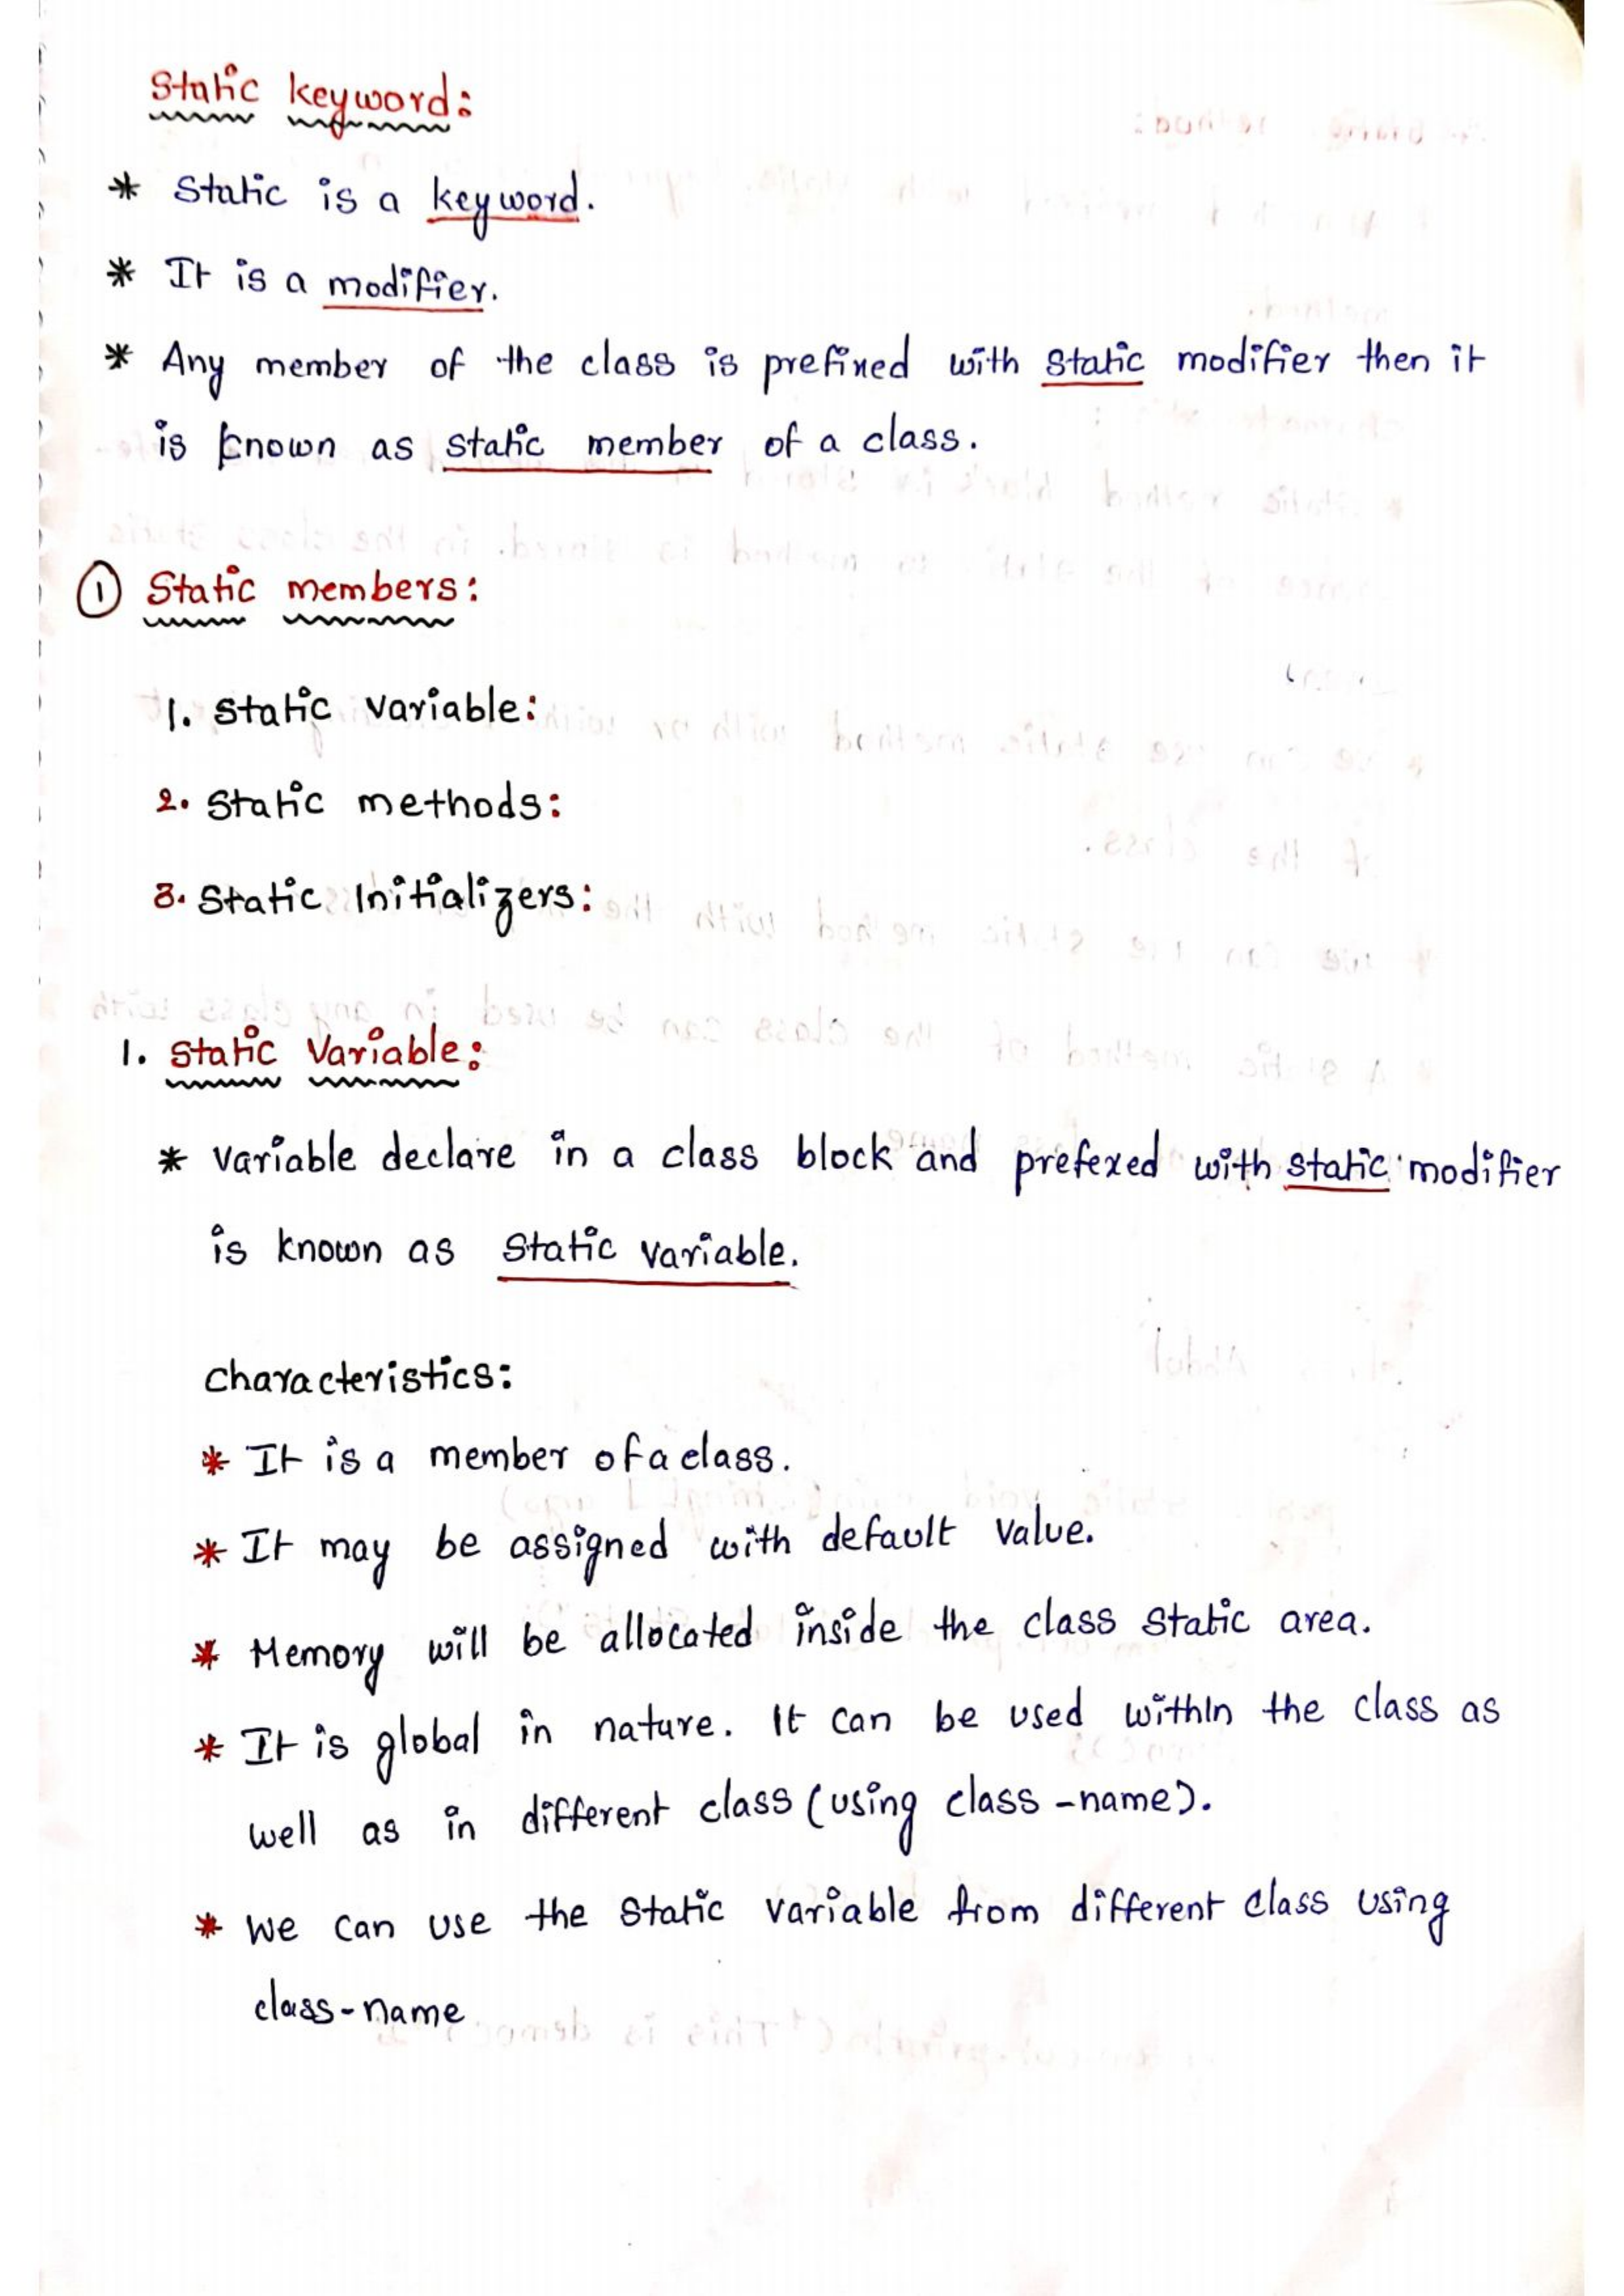 Static keyword:
* Static is a keyword.
* It is a modifier.
* Any member of the class is prefixed with static modifier then it
is known as static member of a class.
① Static members:
1. Static variable:
2. Static methods:
3. Static Initializers:
1. Static Variable:
* Variable declare in a class block and prefexed with static modifier
is known as Static variable.
Characteristics:
* It is a member of a class.
* It may be assigned with default value.
* Memory will be allocated inside the class static area.
* It is global in nature. It can be used within the class as
well as in different class (using class-name).
* We can use the static variable from different class using
class-name